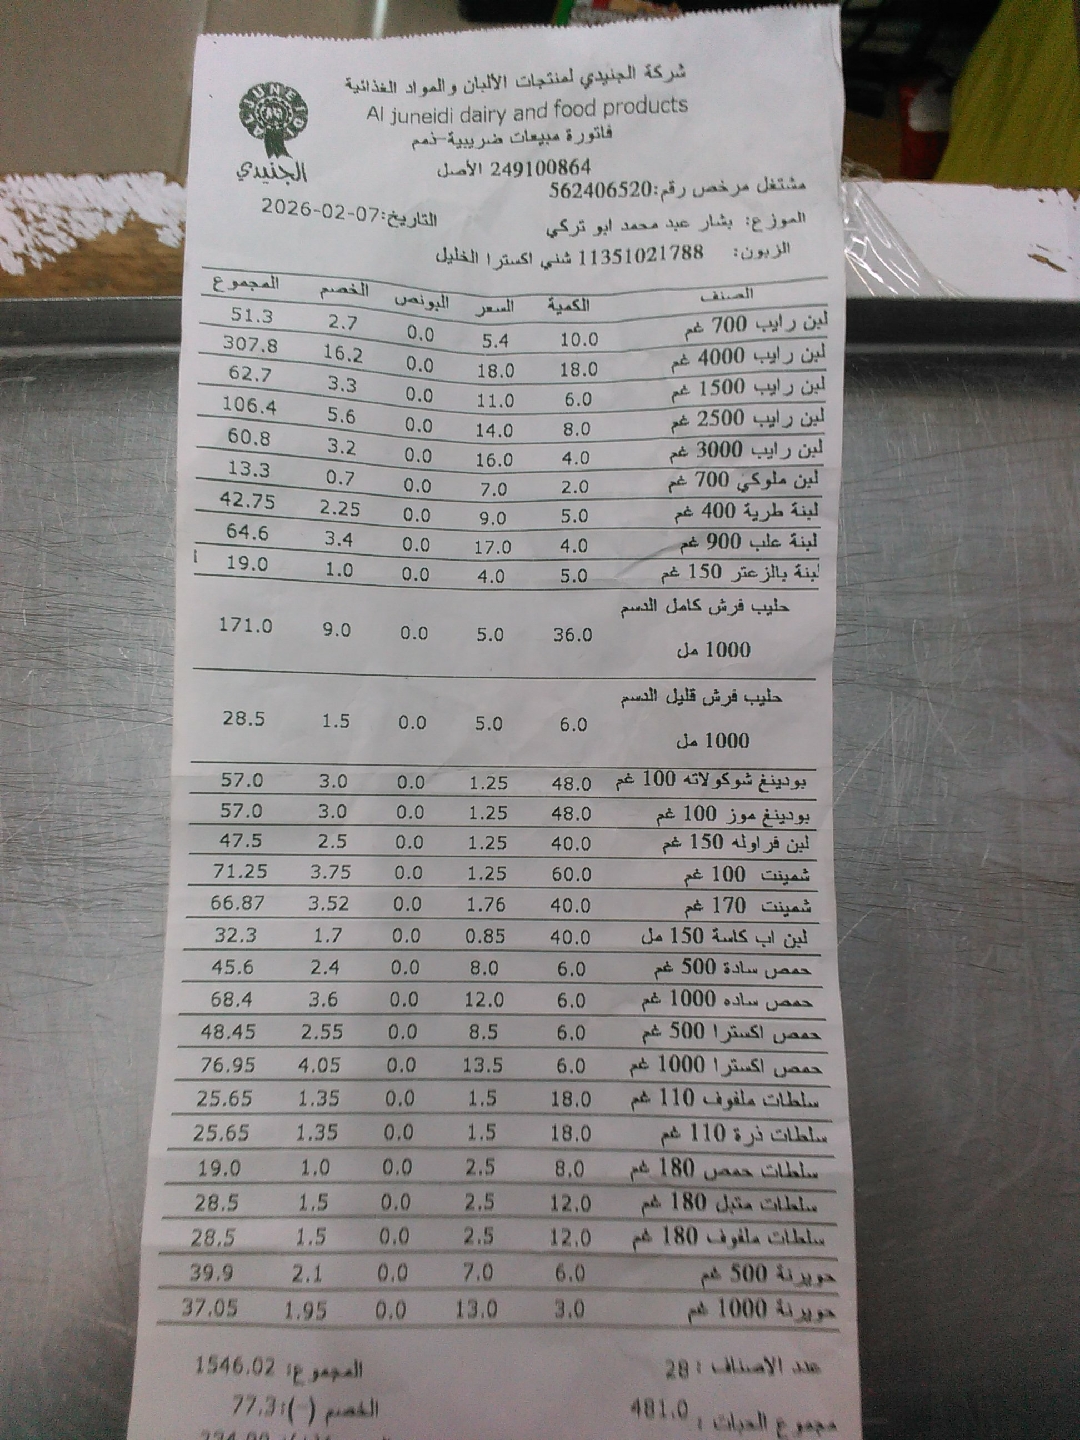 شركة الجنيدي لمنتجات الألبان والمواد الغذائية
Al juneidi dairy and food products
فاتورة مبيعات ضريبية-ذمم
249100864 الأصل
JUNEIDI
الجنيدي
مشتغل مرخص رقم:562406520
التاريخ:2026-02-07
الموزع: بشار عبد محمد ابو تركي
الزبون: 11351021788 شني اكسترا الخليل
الصنف الكمية السعر البونص الخصم المجموع
لبن رايب 700 غم 10.0 5.4 0.0 2.7 51.3
لبن رايب 4000 غم 18.0 18.0 0.0 16.2 307.8
لبن رايب 1500 غم 6.0 11.0 0.0 3.3 62.7
لبن رايب 2500 غم 8.0 14.0 0.0 5.6 106.4
لبن رايب 3000 غم 4.0 16.0 0.0 3.2 60.8
لبن ملوكي 700 غم 2.0 7.0 0.0 0.7 13.3
لبنة طرية 400 غم 5.0 9.0 0.0 2.25 42.75
لبنة علب 900 غم 4.0 17.0 0.0 3.4 64.6
لبنة بالزعتر 150 غم 5.0 4.0 0.0 1.0 19.0
حليب فرش كامل الدسم
1000 مل 36.0 5.0 0.0 9.0 171.0
حليب فرش قليل الدسم
1000 مل 6.0 5.0 0.0 1.5 28.5
بودينغ شوكولاته 100 غم 48.0 1.25 0.0 3.0 57.0
بودينغ موز 100 غم 48.0 1.25 0.0 3.0 57.0
لبن فراوله 150 غم 40.0 1.25 0.0 2.5 47.5
شمينت 100 غم 60.0 1.25 0.0 3.75 71.25
شمينت 170 غم 40.0 1.76 0.0 3.52 66.87
لبن اب كاسة 150 مل 40.0 0.85 0.0 1.7 32.3
حمص سادة 500 غم 6.0 8.0 0.0 2.4 45.6
حمص ساده 1000 غم 6.0 12.0 0.0 3.6 68.4
حمص اكسترا 500 غم 6.0 8.5 0.0 2.55 48.45
حمص اكسترا 1000 غم 6.0 13.5 0.0 4.05 76.95
سلطات ملفوف 110 غم 18.0 1.5 0.0 1.35 25.65
سلطات ذرة 110 غم 18.0 1.5 0.0 1.35 25.65
سلطات حمص 180 غم 8.0 2.5 0.0 1.0 19.0
سلطات متبل 180 غم 12.0 2.5 0.0 1.5 28.5
سلطات ملفوف 180 غم 12.0 2.5 0.0 1.5 28.5
حويرنة 500 غم 6.0 7.0 0.0 2.1 39.9
حويرنة 1000 غم 3.0 13.0 0.0 1.95 37.05
عدد الاصناف : 28 المجموع: 1546.02
مجموع الحبات : 481.0 الخصم (-): 77.3